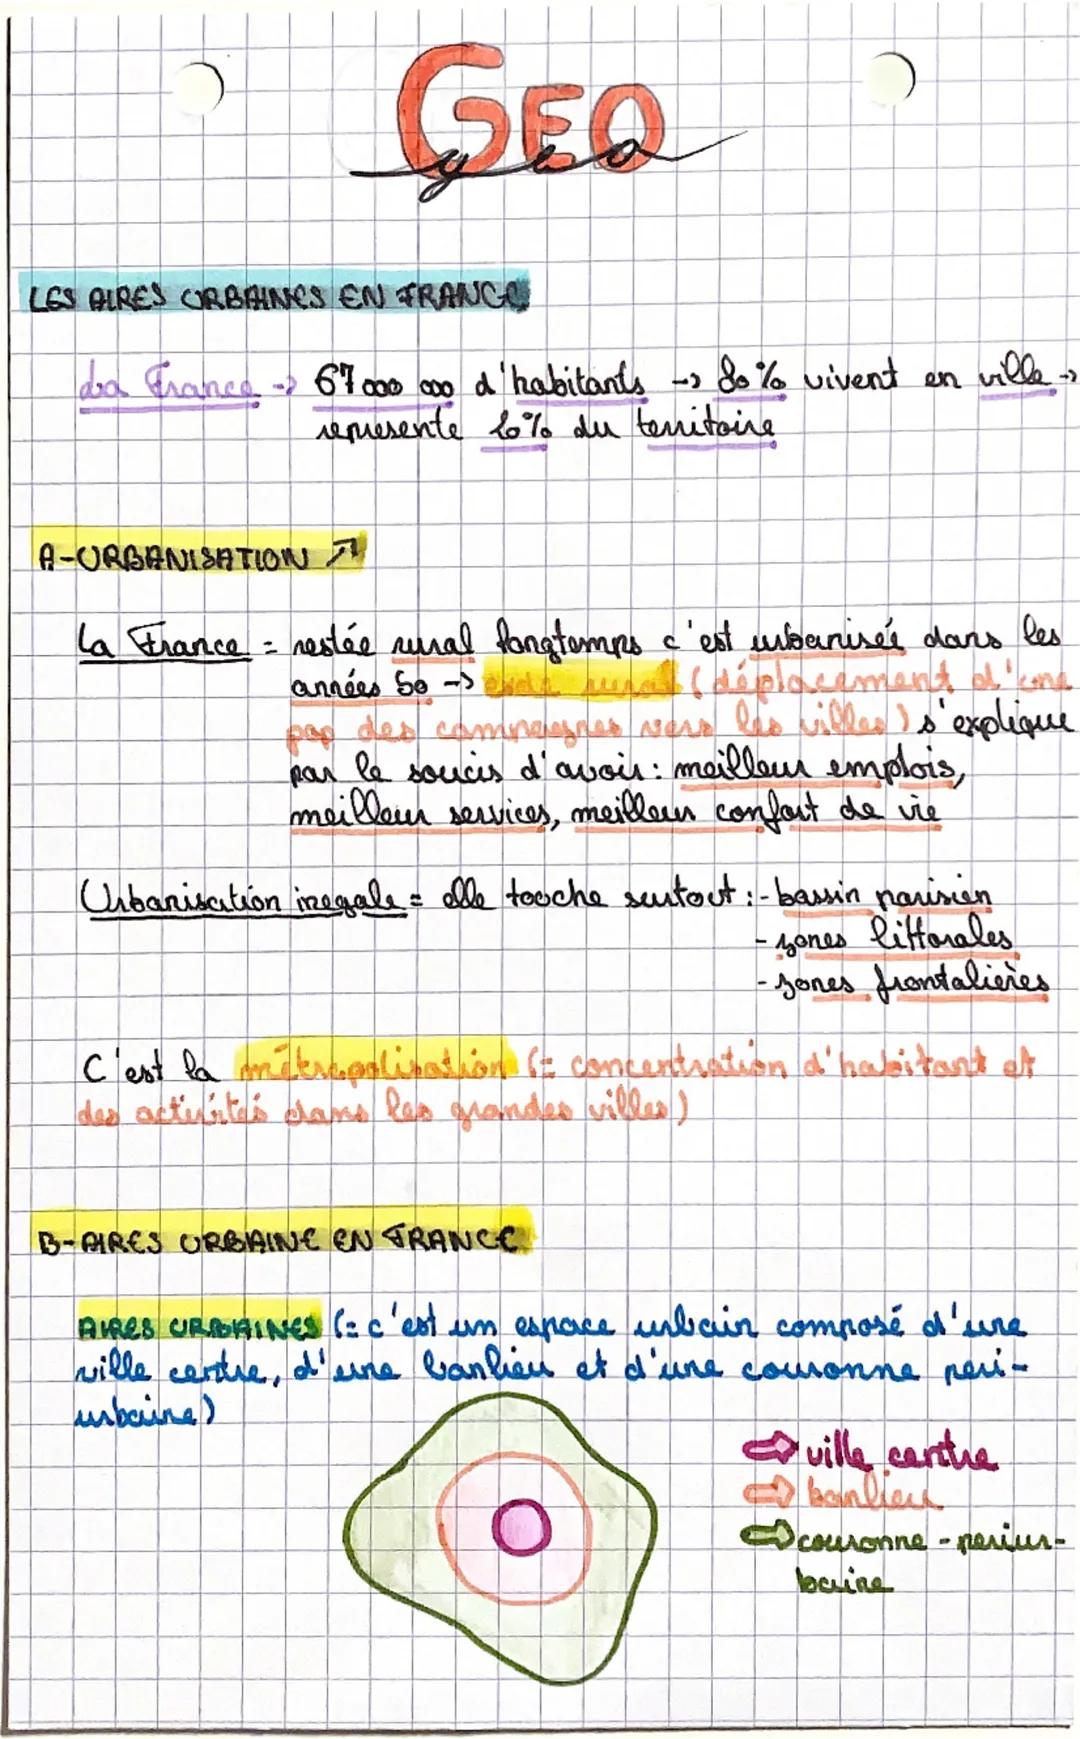 GEO
geo
LES AIRES URBAINES EN FRANCE
La France -> 67 000 000 d'habitants -> 80% vivent en ville ->
represente 20% du territoire
A-URBANISATION ↗
La France = restée rural longtemps c'est urbanisée dans les
années 50 -> exode rural (déplacement d'une
pop des campagnes vers les villes) s'explique
par le soucis d'avoir : meilleur emplois,
meilleur services, meilleur confort de vie
Urbanisation inegale = elle touche surtout : - bassin parisien
- zones littorales
- zones frontalières
C'est la métropolisation (= concentration d'habitant et
des activités dans les grandes villes)
B-AIRES URBAINE EN FRANCE
AIRES URBAINES (= c'est un espace urbain composé d'une
ville centre, d'une banlieu et d'une couronne peri-
urbaine)
⇨ ville centre
⇨ banlieu
⇨ couronne - periur-
baine